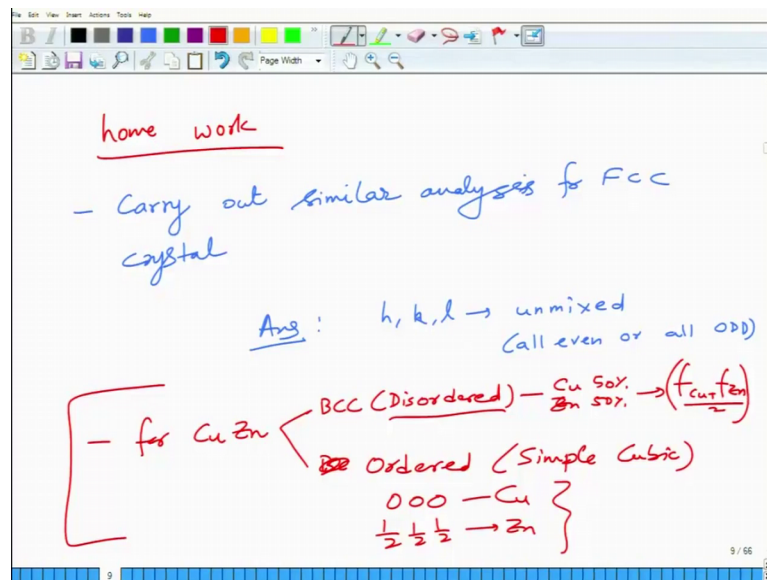 File Edit View Insert Actions Tools Help
B I
Page Width
home work
- Carry out similar analysis for FCC
crystal
Ans : h, k, l → unmixed
(all even or all ODD)
BCC (Disordered) - Cu 50%. → (fCu + fZn / 2)
Zn 50%.
- for CuZn
Ordered (Simple Cubic)
0 0 0 - Cu
1/2 1/2 1/2 → Zn
9 / 66
9